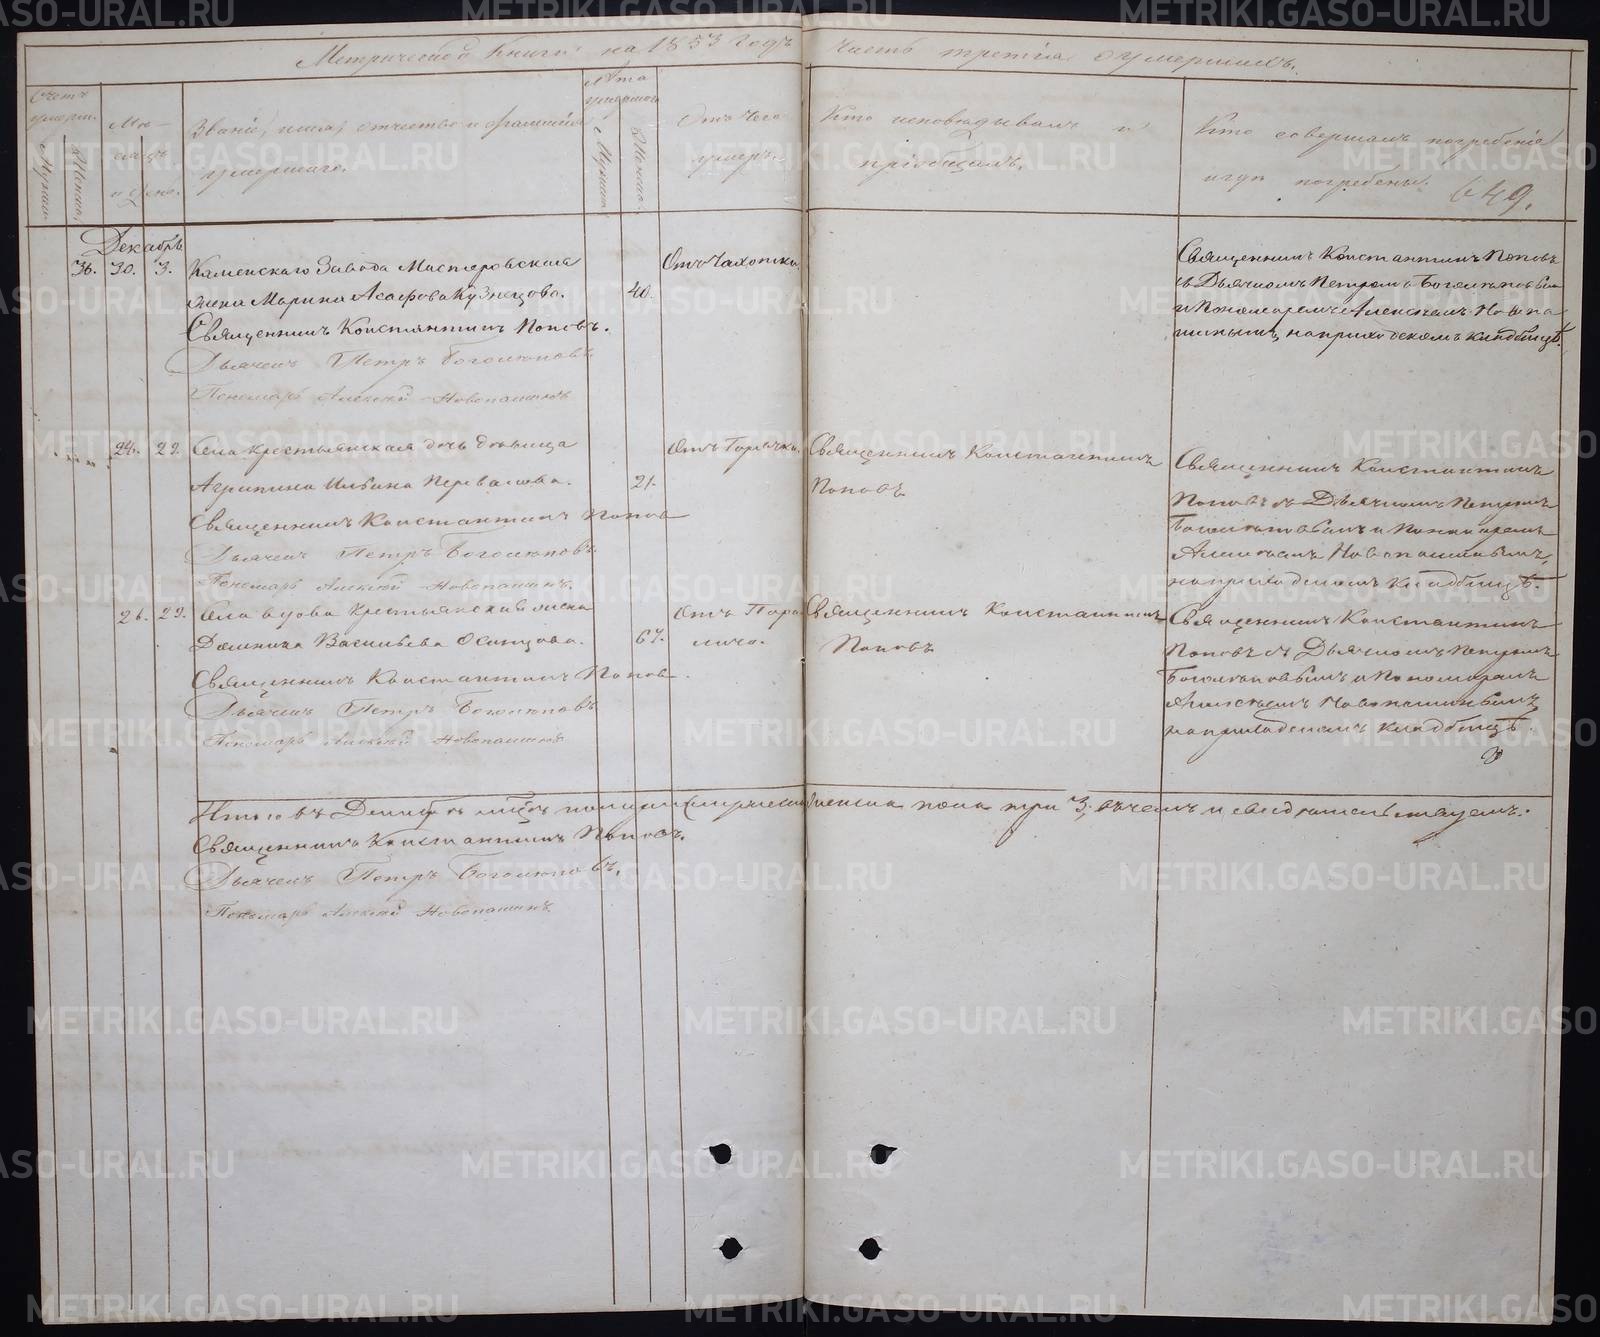 Метрической Книги на 1853 Годъ Часть третiя о умершихъ.
Счетъ умерш.
Мужск.
Женск.
Мѣсяцъ и день.
Званiе, имя, отчество и фамилiя
умершаго.
Лѣта умершаго
Мужск.
Женска.
Отъ чего
умеръ.
Кто исповѣдывалъ и
прiобщалъ.
Кто совершалъ погребенiе
и гдѣ погребены.
649.
Декабрь
36. 30. 3. Каменскаго Завода Мастеровская
жена Марина Асафова Кузнецова. 40.
Отъ Чахотки
Священникъ Константинъ Поповъ
съ Дьячкомъ Петромъ Боголюповым
и Пономаремъ Алексѣемъ Новопа
шинымъ, на приходскомъ кладбищѣ.
Священникъ Константинъ Поповъ.
Дьячекъ Петръ Боголюповъ
Пономарь Алексѣй Новопашинъ
24. 29. Села крестьянская дочь дѣвица
Агрипина Перевалова. 21.
Отъ Горячки.
Священникъ Константинъ
Поповъ
Священникъ Константинъ
Поповъ съ Дьячкомъ Петромъ
Боголюповымъ и Пономаремъ
Алексѣемъ Новопашинымъ,
на приходскомъ кладбищѣ.
Священникъ Константинъ Попов
Дьячекъ Петръ Боголюповъ
Пономарь Алексѣй Новопашинъ.
26. 29. Села вдова Крестьянская жена
Васильева Осинцова. 67.
Отъ Пара
лича.
Священникъ Константинъ
Поповъ
Священникъ Константинъ
Поповъ съ Дьячкомъ Петромъ
Боголюповымъ и Пономаремъ
Алексѣемъ Новопашинымъ
на приходскомъ кладбищѣ.
Священникъ Константинъ Попов.
Дьячекъ Петръ Боголюповъ
Пономарь Алексѣй Новопашинъ
Итого въ Декабрѣ м͠цѣ женска пола три 3, въ чемъ и свидѣтельствуемъ.
Священникъ Константинъ Поповъ.
Дьячекъ Петръ Боголюповъ.
Пономарь Алексѣй Новопашинъ
METRIKI.GASO-URAL.RU